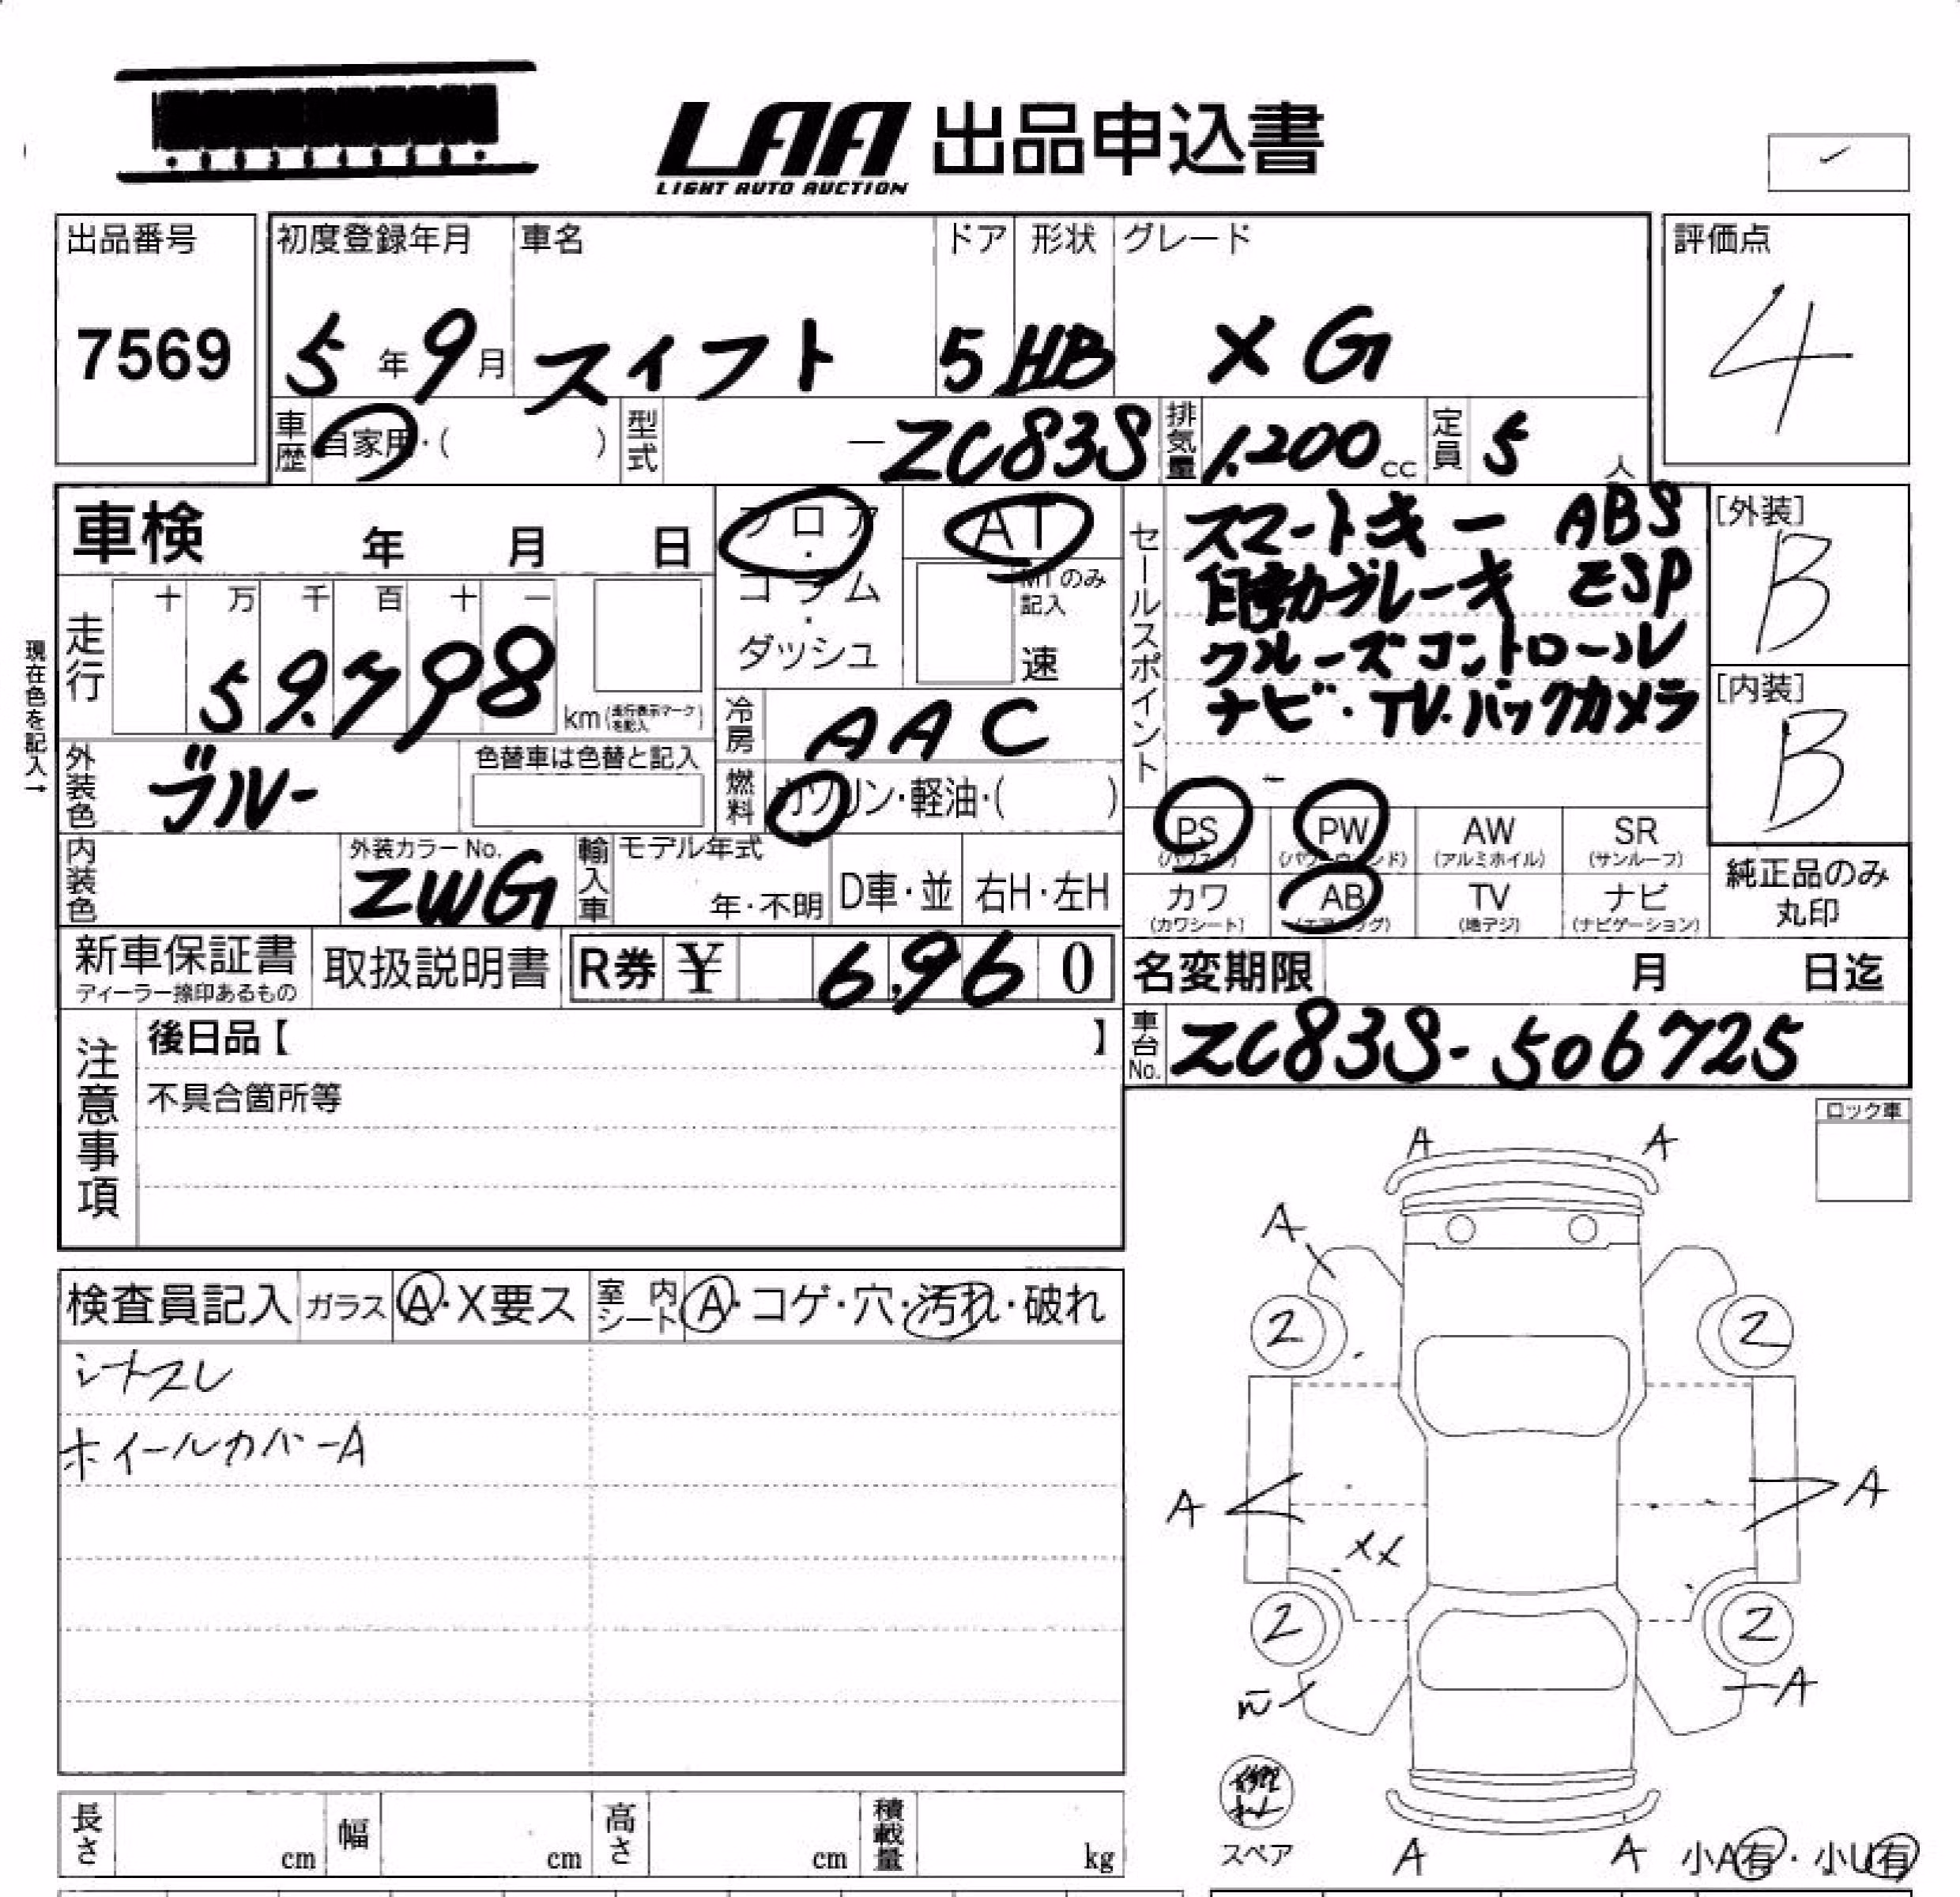 LAA 出品申込書
LIGHT AUTO AUCTION
出品番号
7569
初度登録年月 車名 ドア 形状 グレード
5年9月 スイフト 5 HB XG
車歴 自家用・( ) 型式 -ZC83S 排気量 1,200cc 定員 5人
評価点
4
車検 年 月 日
フロア・コラム・ダッシュ
AT
MTのみ記入
速
現在色を記入→
走行 十 万 千 百 十 一
59,798 km(走行表示マークを記入)
冷房 AAC
外装色 ブルー 色替車は色替と記入
燃料 ガソリン・軽油・( )
内装色 外装カラーNo. ZWG
輸入車 モデル年式 年・不明 D車・並 右H・左H
セールスポイント
スマートキー ABS
自動ブレーキ ESP
クルーズコントロール
ナビ・TV・バックカメラ
PS (パワステ) PW (パワーウィンド) AW (アルミホイル) SR (サンルーフ)
カワ (カワシート) AB (エアバッグ) TV (地デジ) ナビ (ナビゲーション)
[外装]
B
[内装]
B
純正品のみ
丸印
新車保証書
ディーラー捺印あるもの
取扱説明書 R券 ¥ 6,960
名変期限 月 日迄
車台No. ZC83S-506725
注意事項
後日品【 】
不具合箇所等
ロック車
検査員記入 ガラス A・X要ス 室内シート A・コゲ・穴・汚れ・破れ
シートスレ
ホイールカバーA
A A
A
2 2
A A
XX
2 2
A
スペア
A A
小A有・小U有
長さ cm 幅 cm 高さ cm 積載量 kg